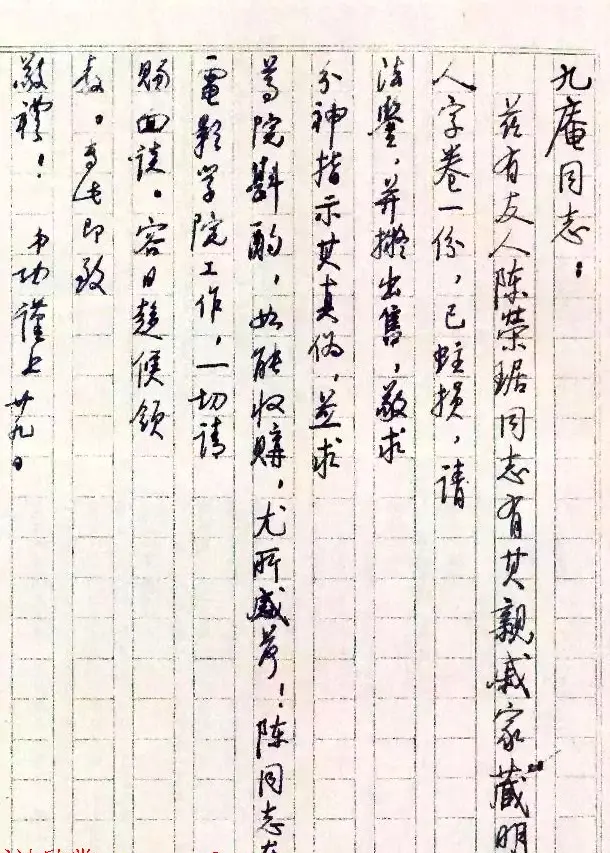 九庵同志：
茲有友人陈荣琚同志有其親戚家藏明
人字卷一份，已蛀损，请
法鑒，并擬出售，敬求
分神指示其真伪，並求
尊院斟酌，如能收購，尤所感荷！陈同志在
電影学院工作，一切请
賜面谈。容日趋候领
教。专此即致
敬禮！ 弟功謹上 廿九日